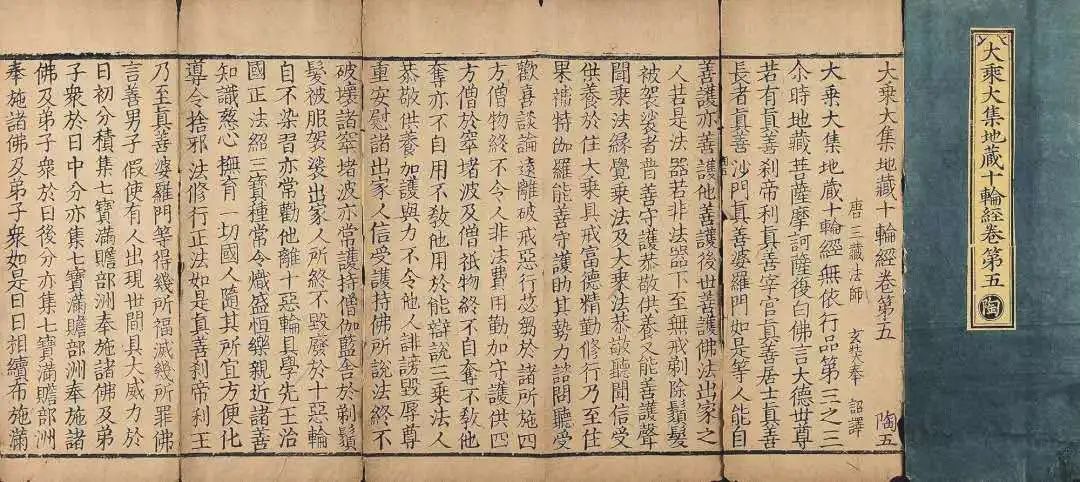 大乘大集地藏十輪經卷第五 陶
大乘大集地藏十輪經卷第五 陶五
唐三藏法師 玄奘奉 詔譯
大乘大集地藏十輪經無依行品第三之三
尒時地藏菩薩摩訶薩復白佛言大德世尊
若有真善刹帝利真善宰官真善居士真善
長者真善沙門真善婆羅門如是等人能自
善護亦善護他善護後世善護佛法出家之
人若是法器若非法器下至無戒剃除鬚髮
被袈裟者普善守護恭敬供養又能善護聲
聞乘法緣覺乘法及大乘法恭敬聽聞信受
供養於住大乘具戒富德精勤修行乃至住
果補特伽羅能善守護助其勢力諮問聽受
歡喜談論遠離破戒惡行苾芻於諸所施四
方僧物終不令人非法費用勤加守護供四
方僧於窣堵波及僧祇物終不自奪不教他
奪亦不自用不教他用於能辯說三乘法人
恭敬供養加護與力不令他人誹謗毀辱尊
重安慰諸出家人信受護持佛所說法終不
破壞諸窣堵波亦常護持僧伽藍舍於剃鬚
髮被服袈裟出家人所終不毀廢於十惡輪
自不染習亦常勸他離十惡輪具學先王治
國正法紹三寶種常令熾盛恒樂親近諸善
知識慈心撫育一切國人隨其所宜方便化
導令捨邪法修行正法如是真善刹帝利王
乃至真善婆羅門等得幾所福滅幾所罪佛
言善男子假使有人出現世間具大威力於
日初分積集七寶滿贍部洲奉施諸佛及弟
子衆於日中分亦集七寶滿贍部洲奉施諸
佛及弟子衆於日後分亦集七寶滿贍部洲
奉施諸佛及弟子衆如是日日相續布施滿